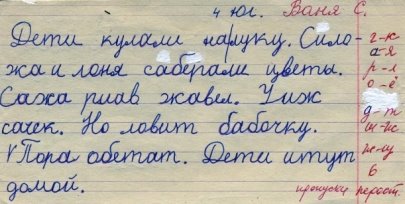 4 юг. Ваня С.
Дети кулали налуку. Сило-
жа и лоня саберали цветы.
Сажа риав жавел. Чиж
сачек. Но ловит бабочку.
Пора обетат. Дети итут
домой.
г-к
а-я
р-л
о-ё
д-т
ш-ж
ж-ц
б
пропуски, перест.